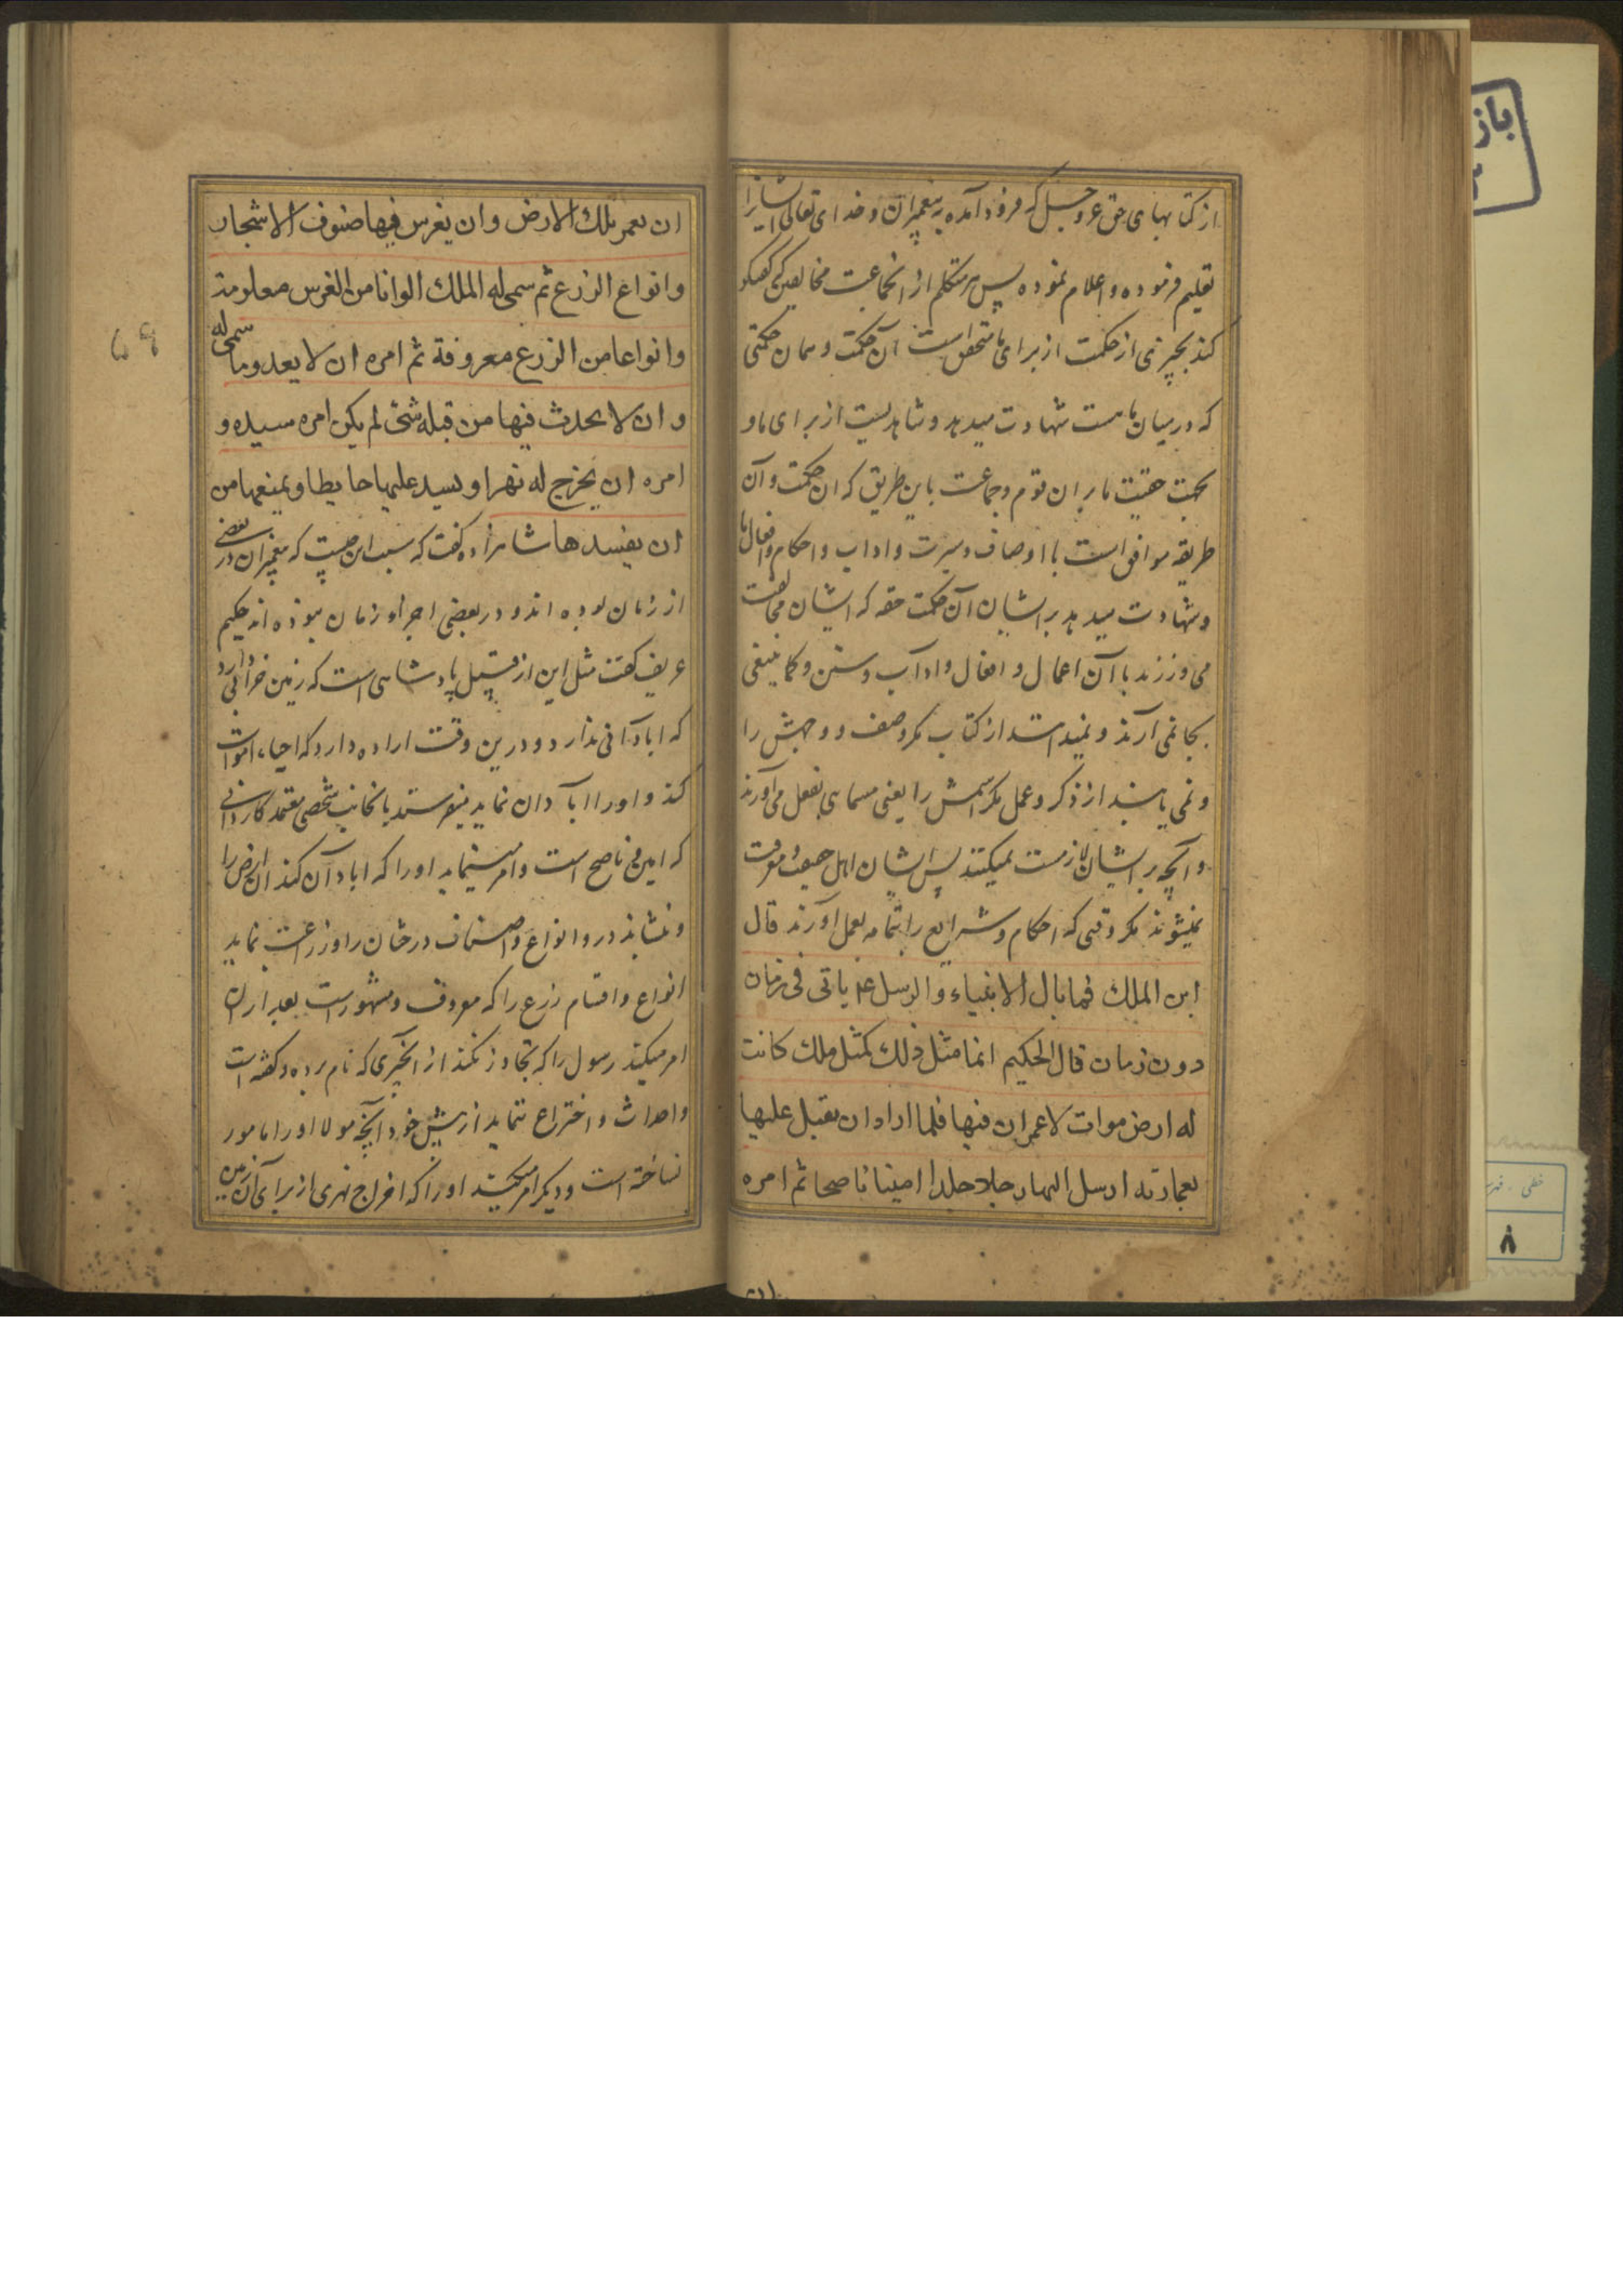 از کتابهای حق عز و جل که فرود آمده به پیغمبران و خدای تعالی ایشانرا
تعلیم فرموده و اعلام نموده پس هر متکلم از انجماعت مخالفین که گفتگو
کند بچیزی از حکمت از برای ما متحقق است آن حکمت و همان حکمتی
که در میان ماست شهادت میدهد و شاهدیست از برای ما و
بحجت حقیت ما بر ان قوم و جماعت باین طریق که ان حکمت و آن
طریقه موافق است با اوصاف و سیرت و اداب و احکام و افعال ما
و شهادت میدهد بر ایشان آن حکمت حقه که ایشان مخالفت
می ورزند با آن اعمال و افعال و اداب و سنن و کما ینبغی
بجا نمی آرند و نمیدانند از کتاب مکر وصف و وجهش را
و نمی یابند از ذکر و عمل مکر اسمش را یعنی مسمای بفعل می آورند
و آنچه بر ایشان لازمست نمیکنند پس ایشان اهل حقیقت و معرفت
نمیشوند مکر وقتی که احکام و شرایع را بتمامه بعمل آورند قال
ابن الملك فما بال الانبیاء والرسل ع یاتی فی زمان
دون زمان قال الحکیم انما مثل ذلك کمثل ملك کانت
له ارض موات لا عمران فیها فلما اراد ان یقبل علیها
بعمارته ارسل الیها رجلا جلدا امینا ناصحا ثم امره
ان
ان یعمر تلك الارض وان یغرس فیها صنوف الاشجار
وانواع الزرع ثم سمی له الملك الوانا من الغرس معلومة
وانواعا من الزرع معروفة ثم امره ان لا یعدو ما سمی له
و ان لا یحدث فیها من قبله شئ لم یکن امره سیده و
امره ان یخرج لها نهرا و یسد علیها حایطا و یمنعها من
ان یفسدها شاهزاده گفت که سبب این چیست که پیغمبران در بعضی
از زمان بوده اند و در بعضی اجزاء زمان نبوده اند حکیم
عریف گفت مثل این از قبیل پادشاهی است که زمین خرابی دارد
که ابادانی ندارد و درین وقت اراده دارد که احیاء اموات
کند و اورا آبادان نماید میفرستد بانجانب شخصی معتمد کاردانی
که امین و ناصح است و امر مینماید اورا که ابادان کند ان ارض را
و بنشاند درو انواع و اصناف درختان را و زراعت نماید
انواع و اقسام زرع را که معروف و مشهورست بعد ازان
امر میکند رسول را که تجاوز نکند از انچیزی که نام برده و گفته است
و احداث و اختراع ننماید از پیش خود آنچه مولا اورا مامور
نساخته است و دیگر امر میکند اورا که اخراج نهری از برای آن زمین
باز
خطی
۸